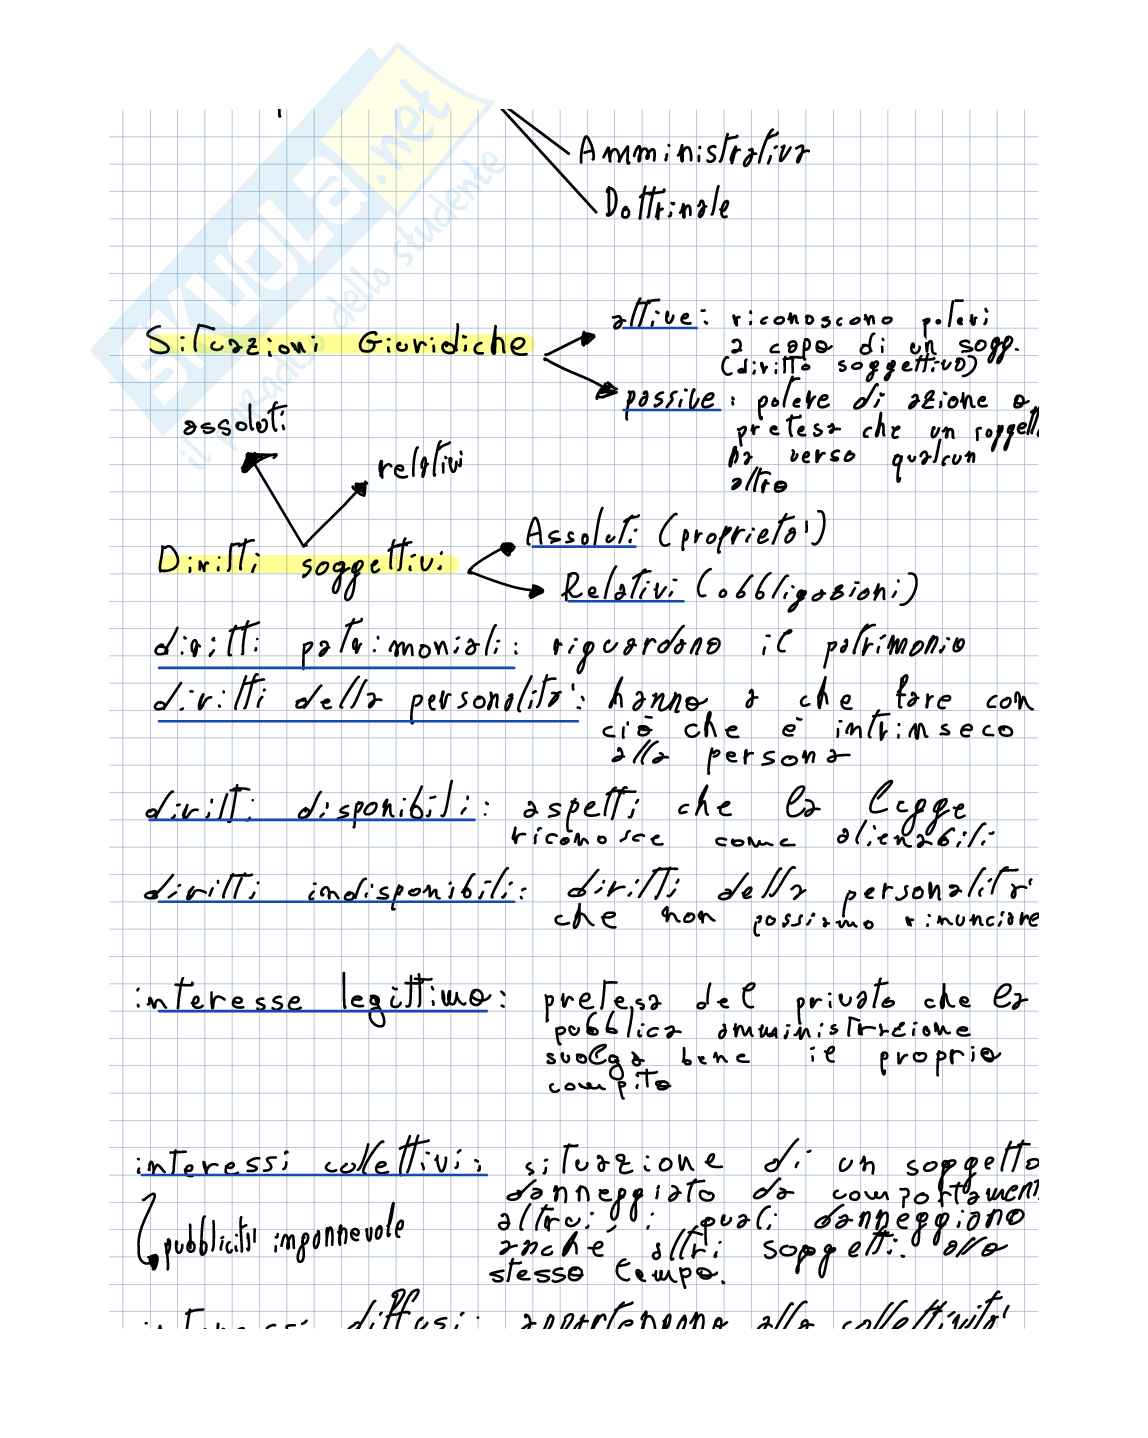 Amministrativa
Dottrinale
Situazioni Giuridiche
attive: riconoscono poteri
a capo di un sogg.
(diritto soggettivo)
passive: potere di azione o
pretesa che un soggett
ha verso qualcun
altro
assoluti
relativi
Diritti soggettivi
Assoluti (proprieta')
Relativi (obbligazioni)
diritti patrimoniali: riguardano il patrimonio
diritti della personalita': hanno a che fare con
ciò che è intrinseco
alla persona
diritti disponibili: aspetti che la legge
riconosce come alienabili
diritti indisponibili: diritti della personalita'
che non possiamo rinunciare
interesse legittimo: pretesa del privato che la
pubblica amministrazione
svolga bene il proprio
compito
interessi collettivi: situazione di un soggetto
danneggiato da comportament
altrui, i quali danneggiano
anche altri soggetti. allo
stesso tempo.
pubblicita' ingannevole
interessi diffusi: appartengono alla collettivita'
SKUOLA.net
il paradiso dello studente